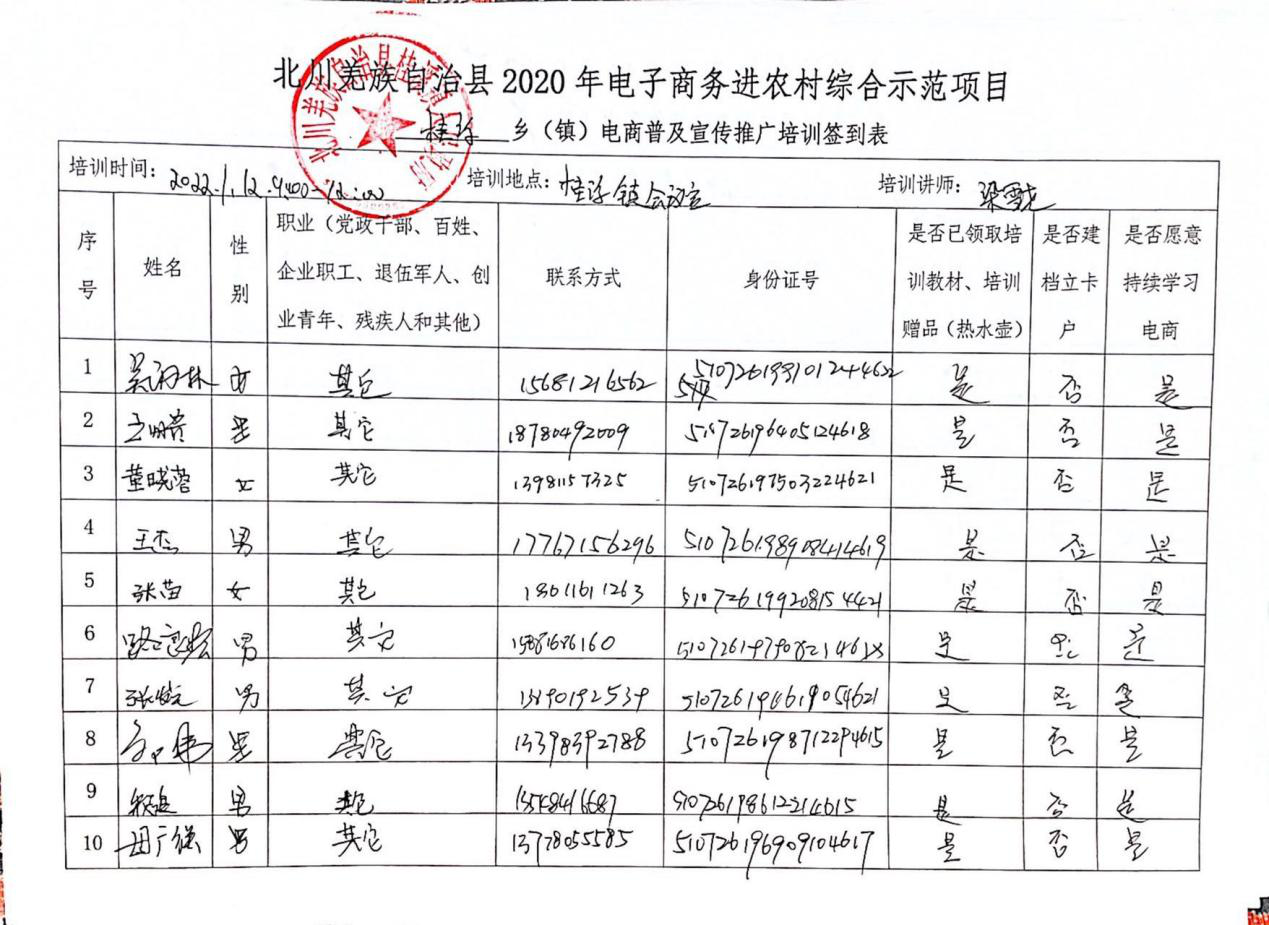 北川羌族自治县 2020 年电子商务进农村综合示范项目
桂溪 乡（镇）电商普及宣传推广培训签到表
培训时间：2022.1.12. 9:00-12:00 培训地点：桂溪镇会议室 培训讲师：梁雪龙
序号 姓名 性别 职业（党政干部、百姓、企业职工、退伍军人、创业青年、残疾人和其他） 联系方式 身份证号 是否已领取培训教材、培训赠品（热水壶） 是否建档立卡户 是否愿意持续学习电商
1 女 其它 15681216562 是 否 是
2 男 其它 18780492009 510726196405124618 是 否 是
3 董晓蓉 女 其它 13981157325 510726197503224621 是 否 是
4 王杰 男 其它 17767156296 是 否 是
5 张苗 女 其它 18011611263 510726199208154421 是 否 是
6 男 其它 是 否 是
7 男 其它 13890192539 是 否 是
8 男 其它 13398392788 510726198712294615 是 否 是
9 男 其它 13548416687 510726198612214615 是 否 是
10 毋广强 男 其它 13778055585 510726196909104617 是 否 是